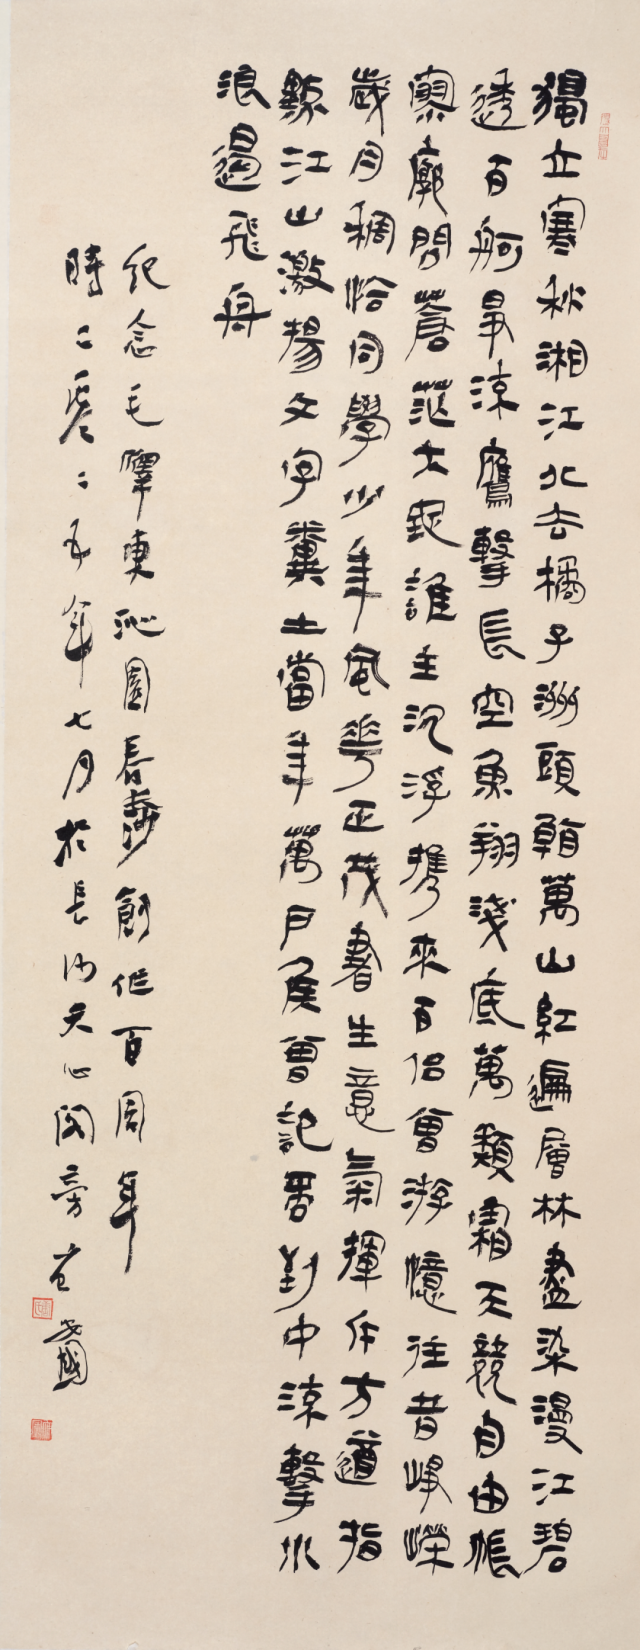 獨立寒秋湘江北去橘子洲頭看萬山紅遍層林盡染漫江碧
透百舸爭流鷹擊長空魚翔淺底萬類霜天競自由悵
寥廓問蒼茫大地誰主沉浮攜來百侶曾游憶往昔崢嶸
歲月稠恰同學少年風華正茂書生意氣揮斥方遒指
點江山激揚文字糞土當年萬戶侯曾記否到中流擊水
浪遏飛舟
紀念毛澤東沁園春長沙創作百周年
時二零二五年七月於長沙天心閣旁